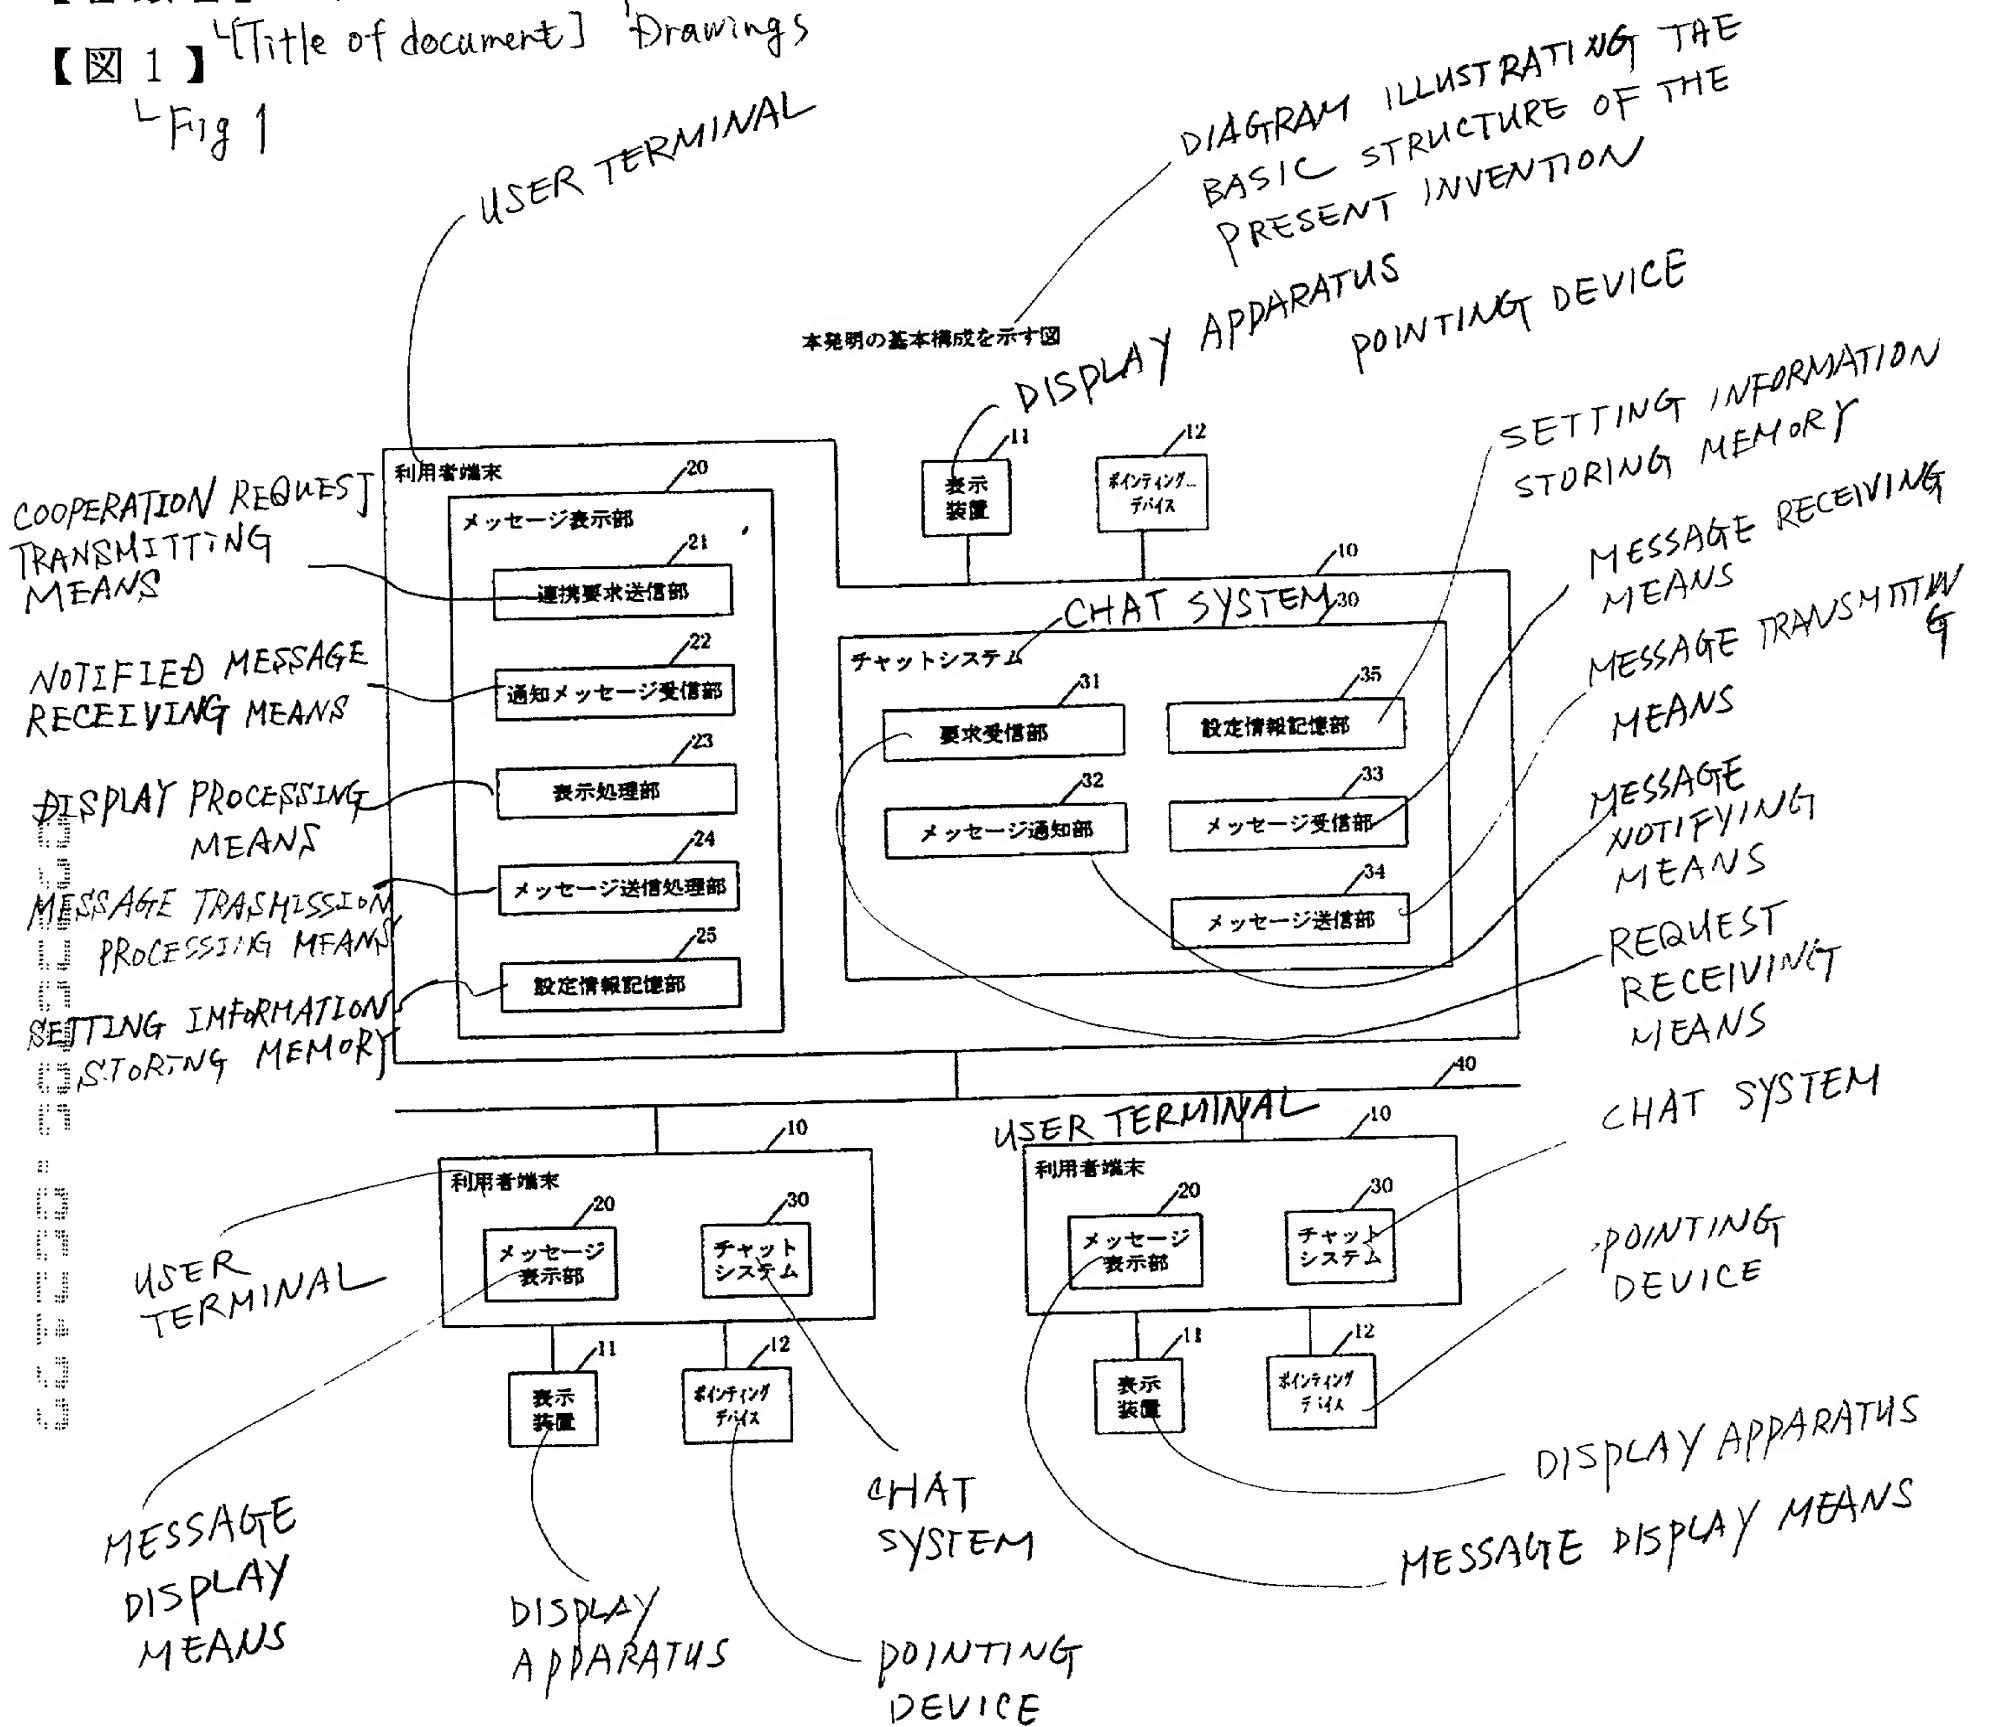 [Title of document] Drawings
【図1】
Fig 1
USER TERMINAL
DIAGRAM ILLUSTRATING THE
BASIC STRUCTURE OF THE
PRESENT INVENTION
本発明の基本構成を示す図
DISPLAY APPARATUS
POINTING DEVICE
SETTING INFORMATION
STORING MEMORY
MESSAGE RECEIVING
MEANS
MESSAGE TRANSMITTING
MEANS
MESSAGE
NOTIFYING
MEANS
REQUEST
RECEIVING
MEANS
COOPERATION REQUEST
TRANSMITTING
MEANS
NOTIFIED MESSAGE
RECEIVING MEANS
DISPLAY PROCESSING
MEANS
MESSAGE TRASMISSION
PROCESSING MEANS
SETTING IMFORMATION
STORING MEMORY
利用者端末
20
メッセージ表示部
21
連携要求送信部
22
通知メッセージ受信部
23
表示処理部
24
メッセージ送信処理部
25
設定情報記憶部
11
表示
装置
12
ポインティング
デバイス
10
CHAT SYSTEM
30
チャットシステム
31
要求受信部
35
設定情報記憶部
32
メッセージ通知部
33
メッセージ受信部
34
メッセージ送信部
40
10
利用者端末
20
メッセージ
表示部
30
チャット
システム
11
表示
装置
12
ポインティング
デバイス
USER TERMINAL
10
利用者端末
20
メッセージ
表示部
30
チャット
システム
11
表示
装置
12
ポインティング
デバイス
CHAT SYSTEM
POINTING
DEVICE
DISPLAY APPARATUS
MESSAGE DISPLAY MEANS
USER
TERMINAL
MESSAGE
DISPLAY
MEANS
DISPLAY
APPARATUS
CHAT
SYSTEM
POINTING
DEVICE